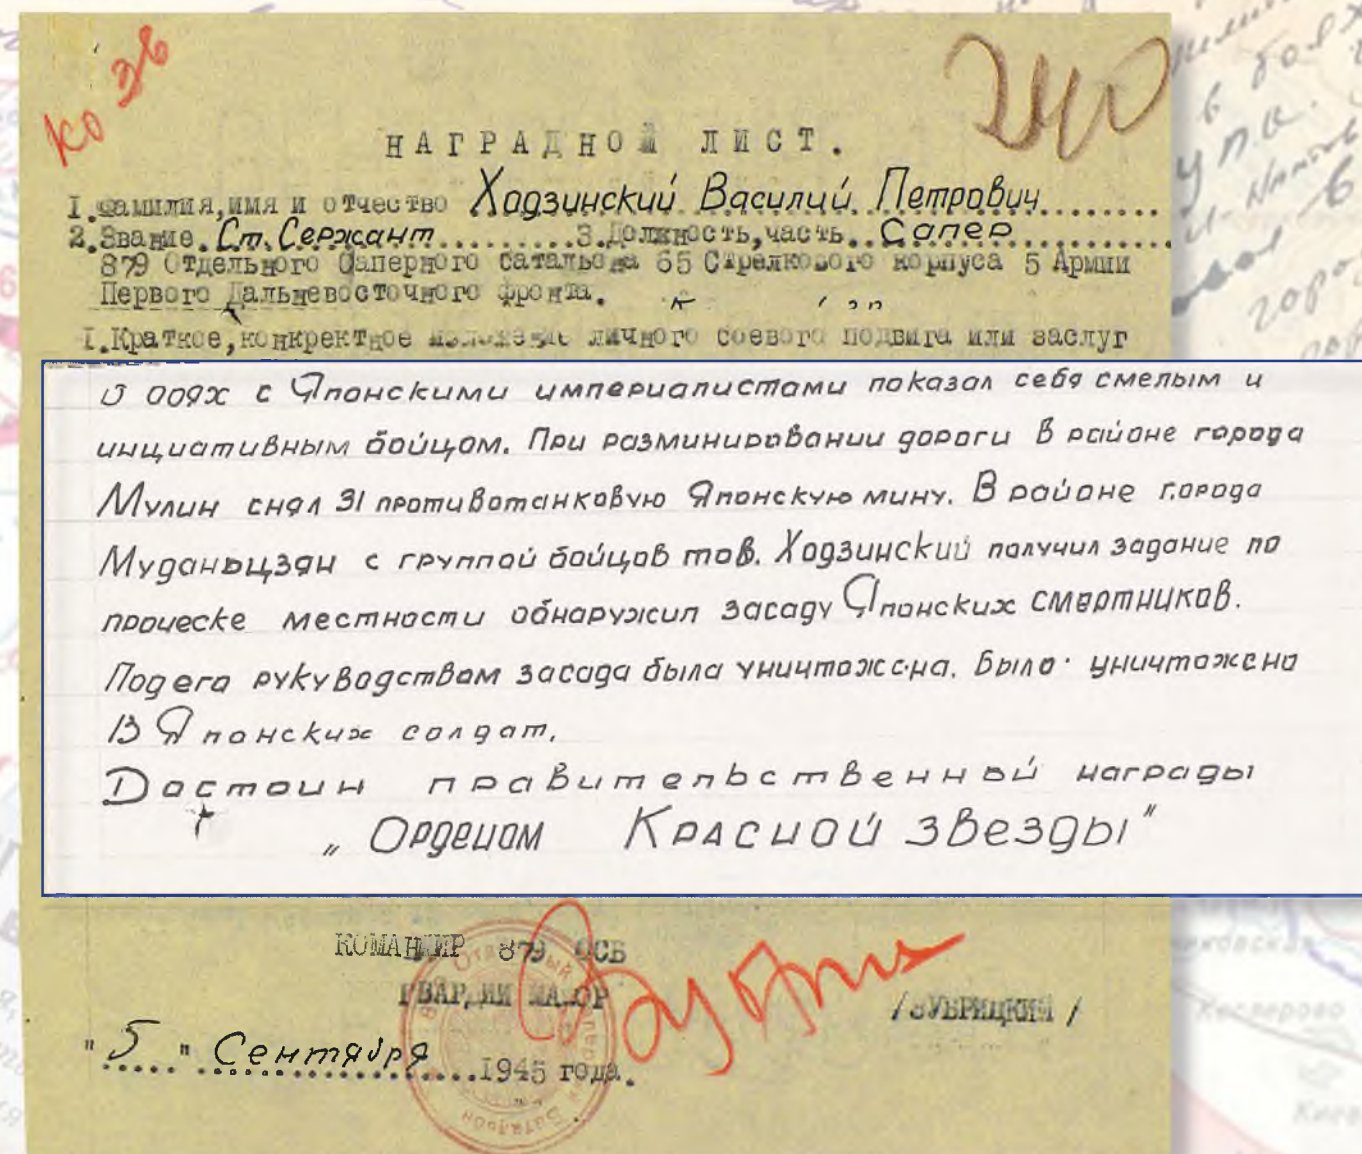 Ко 36
240
НАГРАДНОЙ ЛИСТ.
I. Фамилия, имя и отчество Ходзинский Василий Петрович
2. Звание. Ст. Сержант 3. Должность, часть.. Сапер
879 Отдельного Саперного батальона 65 Стрелкового корпуса 5 Армии
Первого Дальневосточного фронта.
I. Краткое, конкретное изложение личного боевого подвига или заслуг
В боях с Японскими империалистами показал себя смелым и
инициативным бойцом. При разминировании дороги в районе города
Мулин снял 31 противотанковую Японскую мину. В районе города
Муданьцзян с группой бойцов тов. Ходзинский получил задание по
проческе местности обнаружил засаду Японских смертников.
Под его руководством засада была уничтожена. Было уничтожено
13 Японских солдат.
Достоин правительственный награды
„Орденом Красной Звезды"
КОМАНДИР 879 ОСБ
ГВАРДИИ МАЙОР /ЗУБРИЦКИЙ/
"5" Сентября 1945 года.